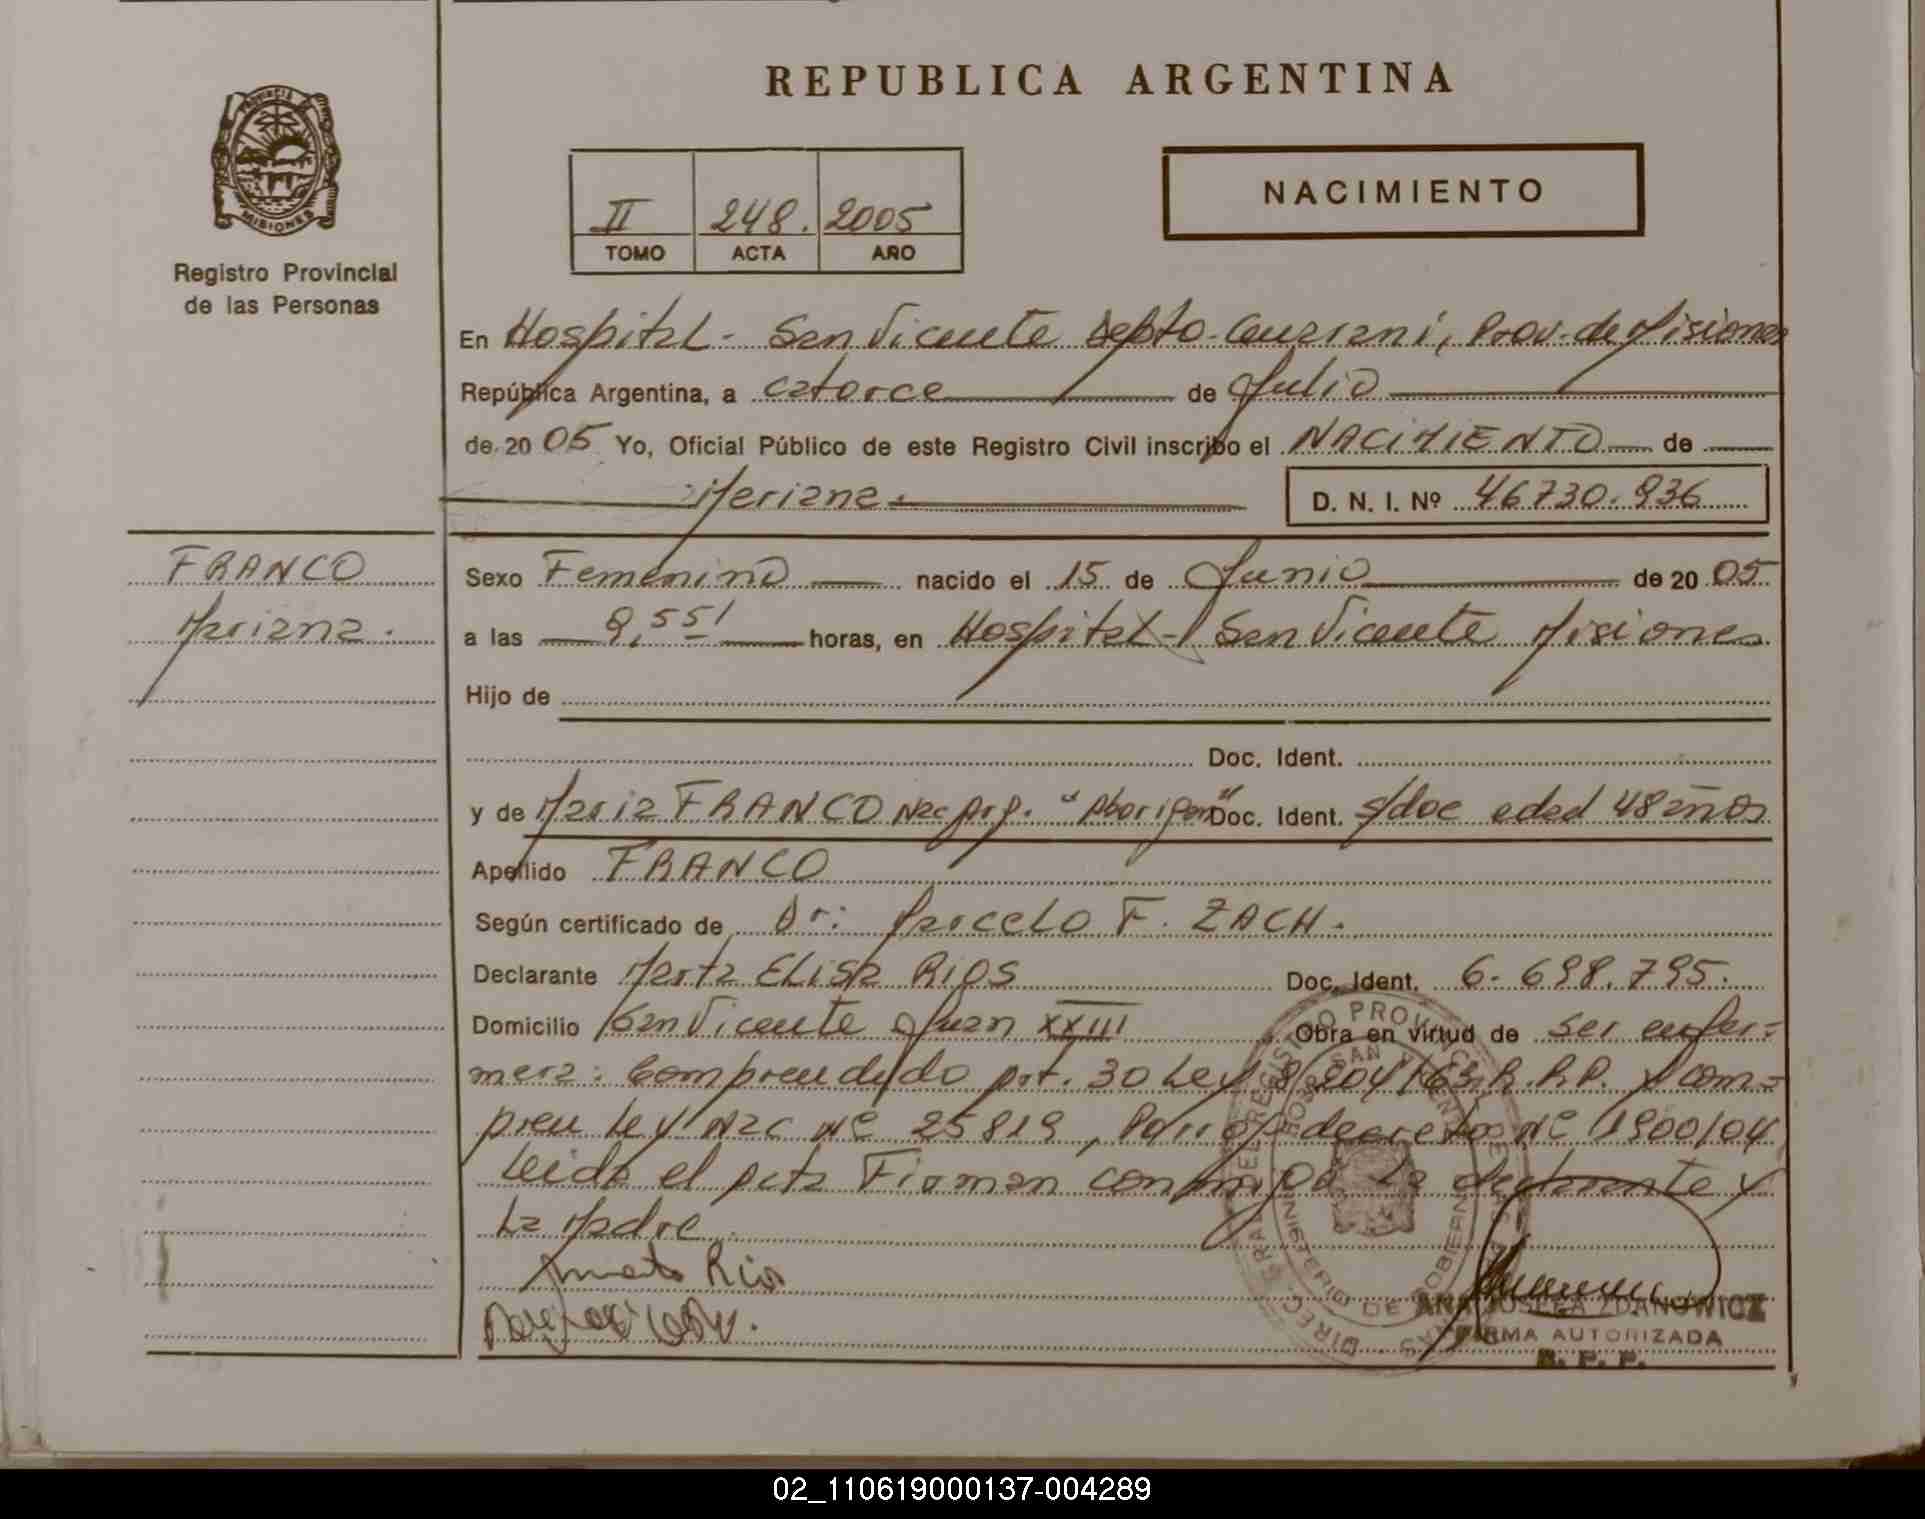 REPUBLICA ARGENTINA
PROVINCIA DE
MISIONES
Registro Provincial
de las Personas
II 248. 2005
TOMO ACTA AÑO
NACIMIENTO
En Hospital - San Vicente Depto - Guarani, Prov. de Misiones
República Argentina, a catorce de Julio
de 20 05 Yo, Oficial Público de este Registro Civil inscribo el NACIMIENTO de
Mariana. D. N. I. Nº 46730.936
FRANCO
Mariana.
Sexo Femenino nacido el 15 de Junio de 20 05
a las 9,55' horas, en Hospital - San Vicente Misiones
Hijo de
Doc. Ident.
y de Maria FRANCO Nac Arg. "Aborigen" Doc. Ident. s/doc edad 48 años
Apellido FRANCO
Según certificado de Dr: Marcelo F. ZACH.
Declarante Marta ELISA RIOS Doc. Ident. 6.698.795.
Domicilio San Vicente Juan XXIII Obra en virtud de ser enfer=
mera. Comprendido Art. 30 Ley 8204/63 R.P.P. y com=
pren Ley Nac Nº 25819, decreto Nº 1900/04
Leida el acta Firman conmigo la declarante y
La Madre.
Rios
ANA JOSEFA ZDANOWICZ
FIRMA AUTORIZADA
R. P. P.
02_110619000137-004289